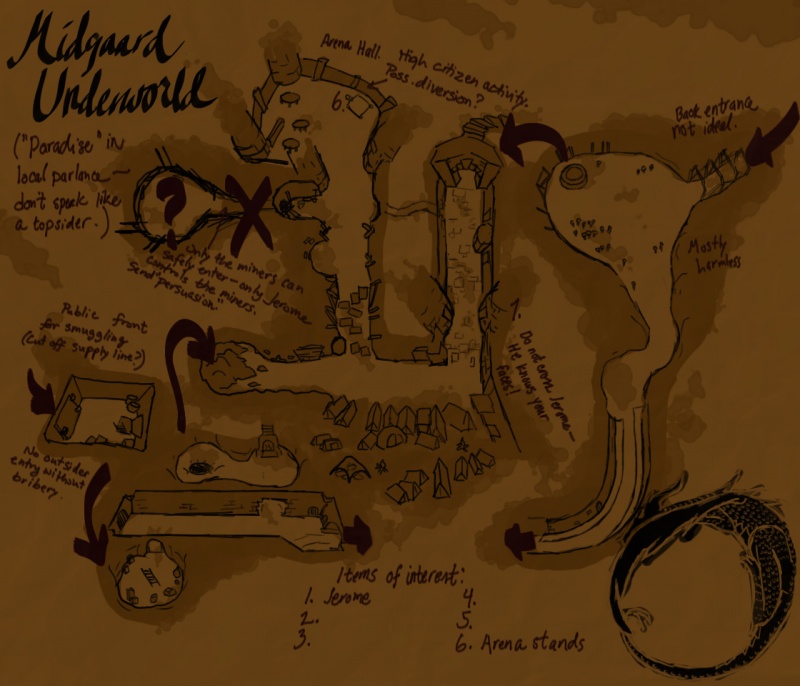 Midgaard
Underworld
("Paradise" in
local parlance—
don't speak like
a topsider.)
Arena Hall. High citizen activity.
Poss. diversion?
6.
Back entrance
not ideal.
?
X
Only the miners can
safely enter—only Jerome
controls the miners.
Send "persuasion."
Mostly
harmless
Public front
for smuggling
(Cut off supply line?)
1. Do not cross Jerome—
He knows your
faces!
No outsider
entry without
bribery.
Items of interest:
1. Jerome
2.
3.
4.
5.
6. Arena stands